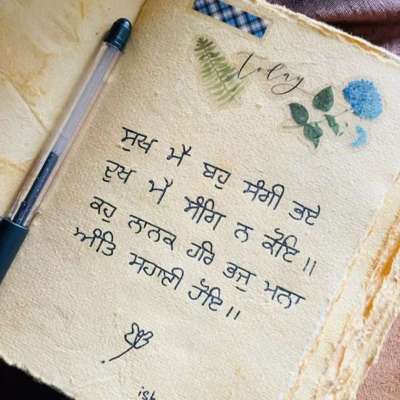 today
ਸੁਖ ਮੈ ਬਹੁ ਸੰਗੀ ਭਏ
ਦੁਖ ਮੈ ਸੰਗਿ ਨ ਕੋਇ॥
ਕਹੁ ਨਾਨਕ ਹਰਿ ਭਜੁ ਮਨਾ
ਅੰਤਿ ਸਹਾਈ ਹੋਇ॥